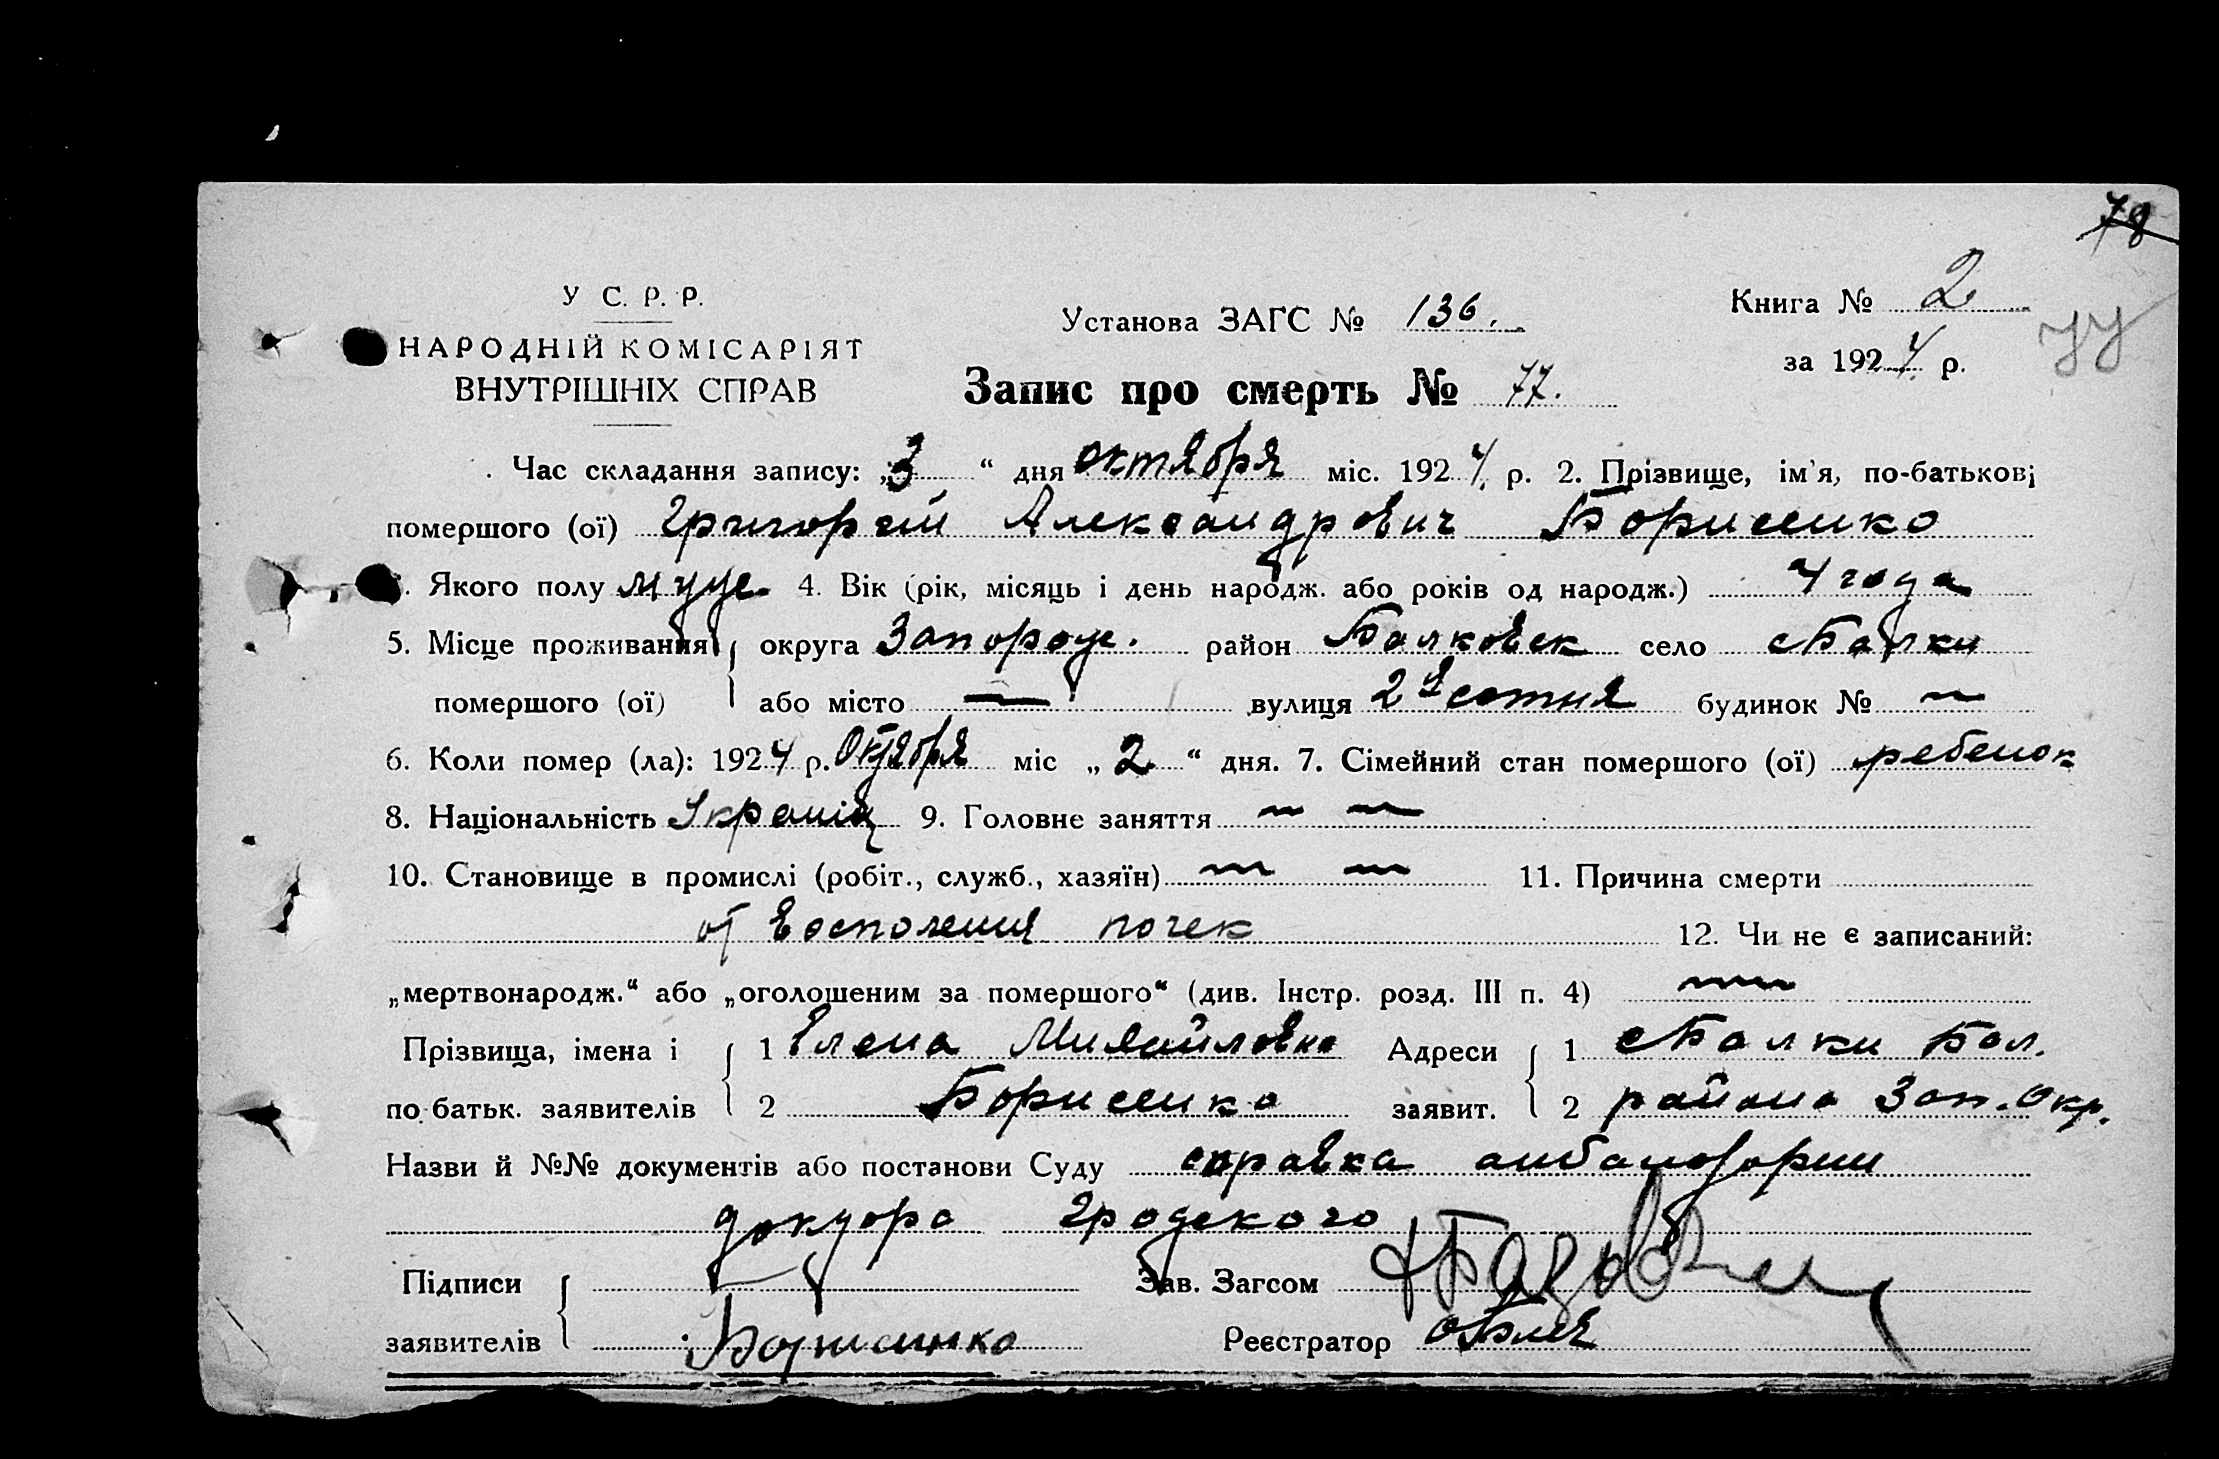 78
У С. Р. Р.
НАРОДНІЙ КОМІСАРІЯТ
ВНУТРІШНІХ СПРАВ
Установа ЗАГС № 136.
Запис про смерть № 77.
Книга № 2
за 1924 р.
77
Час складання запису: „3“ дня октября міс. 1924 р. 2. Прізвище, ім'я, по-батькові
помершого (ої) Григорий Александрович Борисенко
3. Якого полу муж. 4. Вік (рік, місяць і день народж. або років од народж.) 4 года
5. Місце проживання округа Запорож. район Балковск село с Балки
помершого (ої) або місто — вулиця 2я сотня будинок № —
6. Коли помер (ла): 1924 р. Октября міс „2“ дня. 7. Сімейний стан помершого (ої) ребенок
8. Національність Україн 9. Головне заняття — —
10. Становище в промислі (робіт., служб., хазяїн) — — 11. Причина смерти
от восполения почек 12. Чи не є записаний:
„мертвонародж.“ або „оголошеним за помершого“ (див. Інстр. розд. III п. 4) —
Прізвища, імена і 1 Елена Михайловна Адреси 1 с Балки Бал.
по батьк. заявителів 2 Борисенко заявит. 2 района Зап. Окр.
Назви й №№ документів або постанови Суду справка амбалатории
доктора Гродского
Підписи Зав. Загсом
заявителів Борисенко Реєстратор